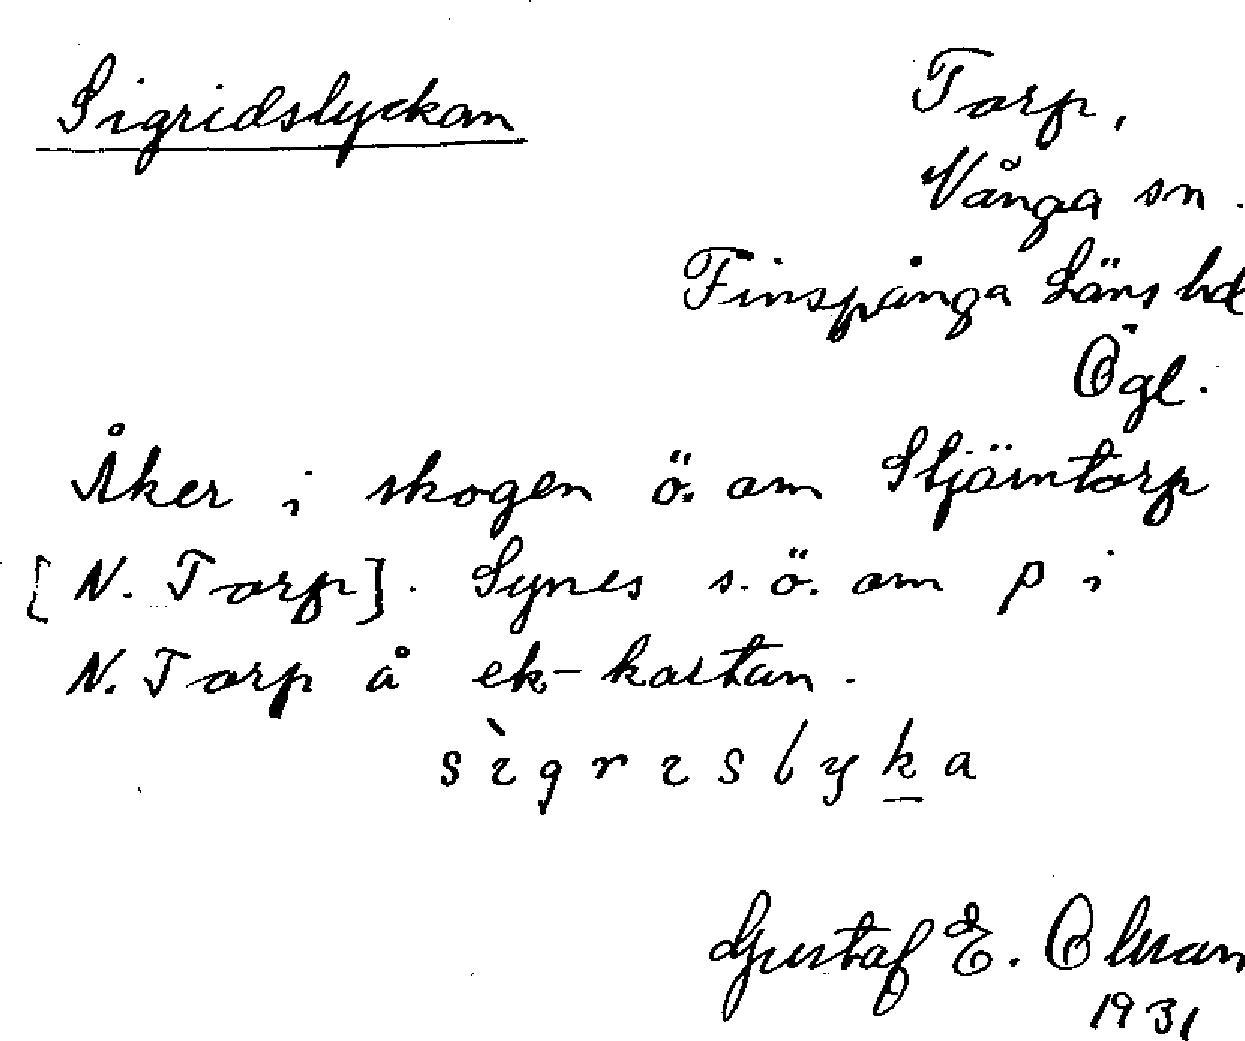 Sigridslyckan
Torp,
Vånga sn.
Finspånga Läns hd
Ögl.
Åker i skogen ö. om Stjärntorp
[N. Torp]. Synes s.ö. om p i
N. Torp å ek-kartan.
sìgrislyka
Gustaf E. Olsson
1931